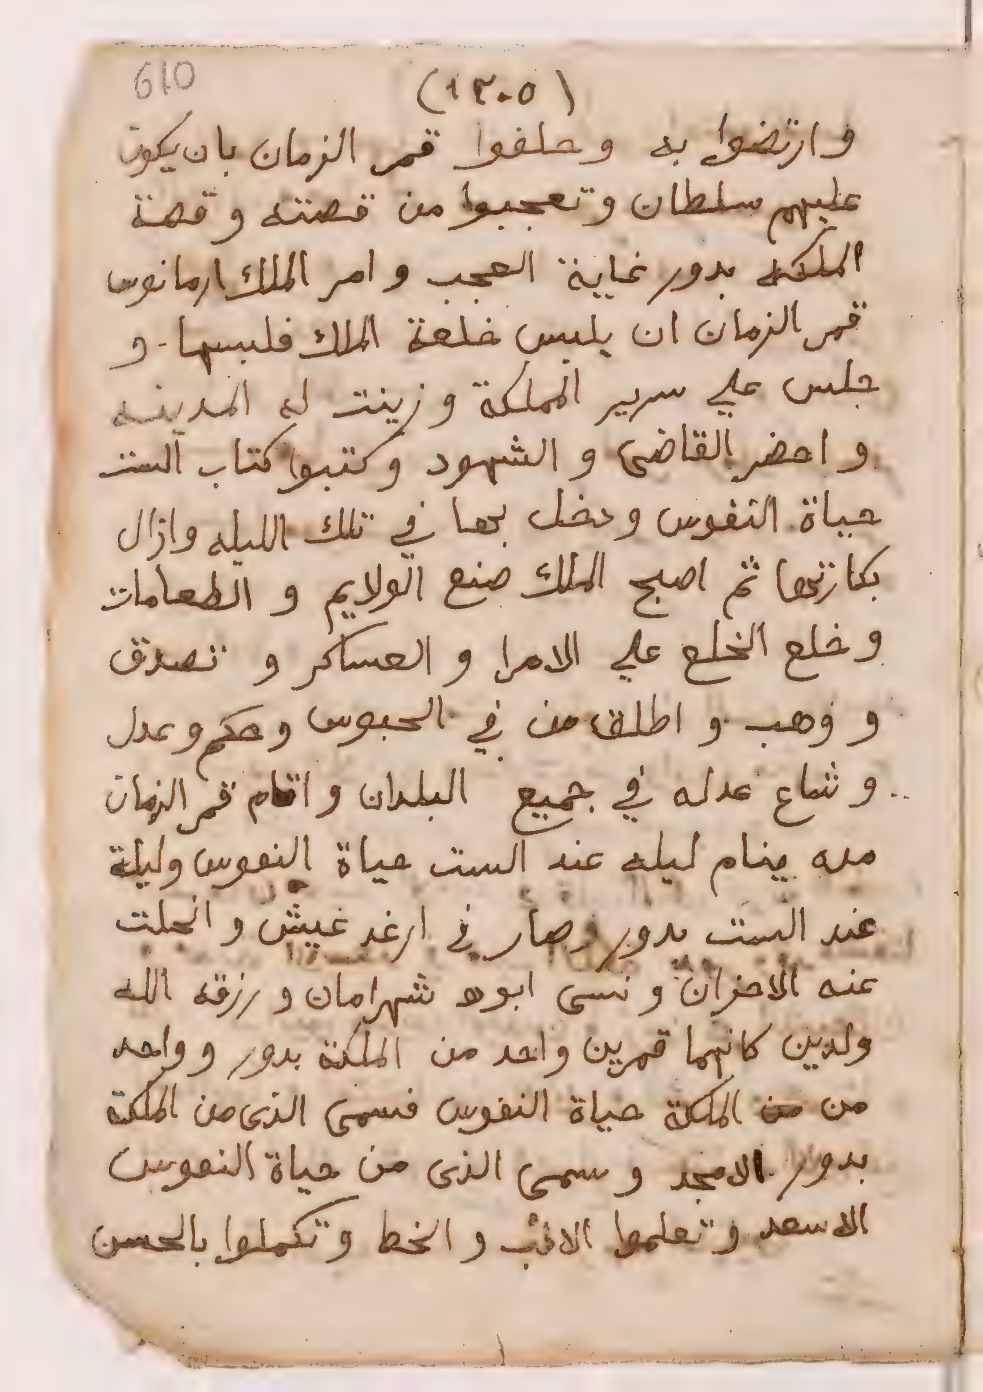 610
(١٢٠٥)
وارتضوا به وحلفوا قمر الزمان بان يكون
عليهم سلطان وتعجبوا من قصته وقصة
الملكه بدور غاية العجب وامر الملك ارمانوس
قمر الزمان ان يلبس خلعة الملك فلبسها و
جلس علي سرير المملكة وزينت له المدينه
واحضر القاضى والشهود وكتبوا كتاب الست
حياة النفوس ودخل بها في تلك الليله وازال
بكارتها ثم اصبح الملك صنع الولايم والطعامات
وخلع الخلع علي الامرا والعساكر وتصدق
ووهب واطلق من في الحبوس وحكم وعدل
وشاع عدله في جميع البلدان واقام قمر الزمان
مده ينام ليله عند الست حياة النفوس وليلة
عند الست بدور وصار في ارغد عيش وانجلت
عنه الاحزان ونسى ابوه شهرامان ورزقه الله
ولدين كانهما قمرين واحد من الملكة بدور وواحد
من من الملكة حياة النفوس فسمى الذى من الملكة
بدور الامجد وسمى الذى من حياة النفوس
الاسعد وتعلموا الادب والخط وتكملوا بالحسن